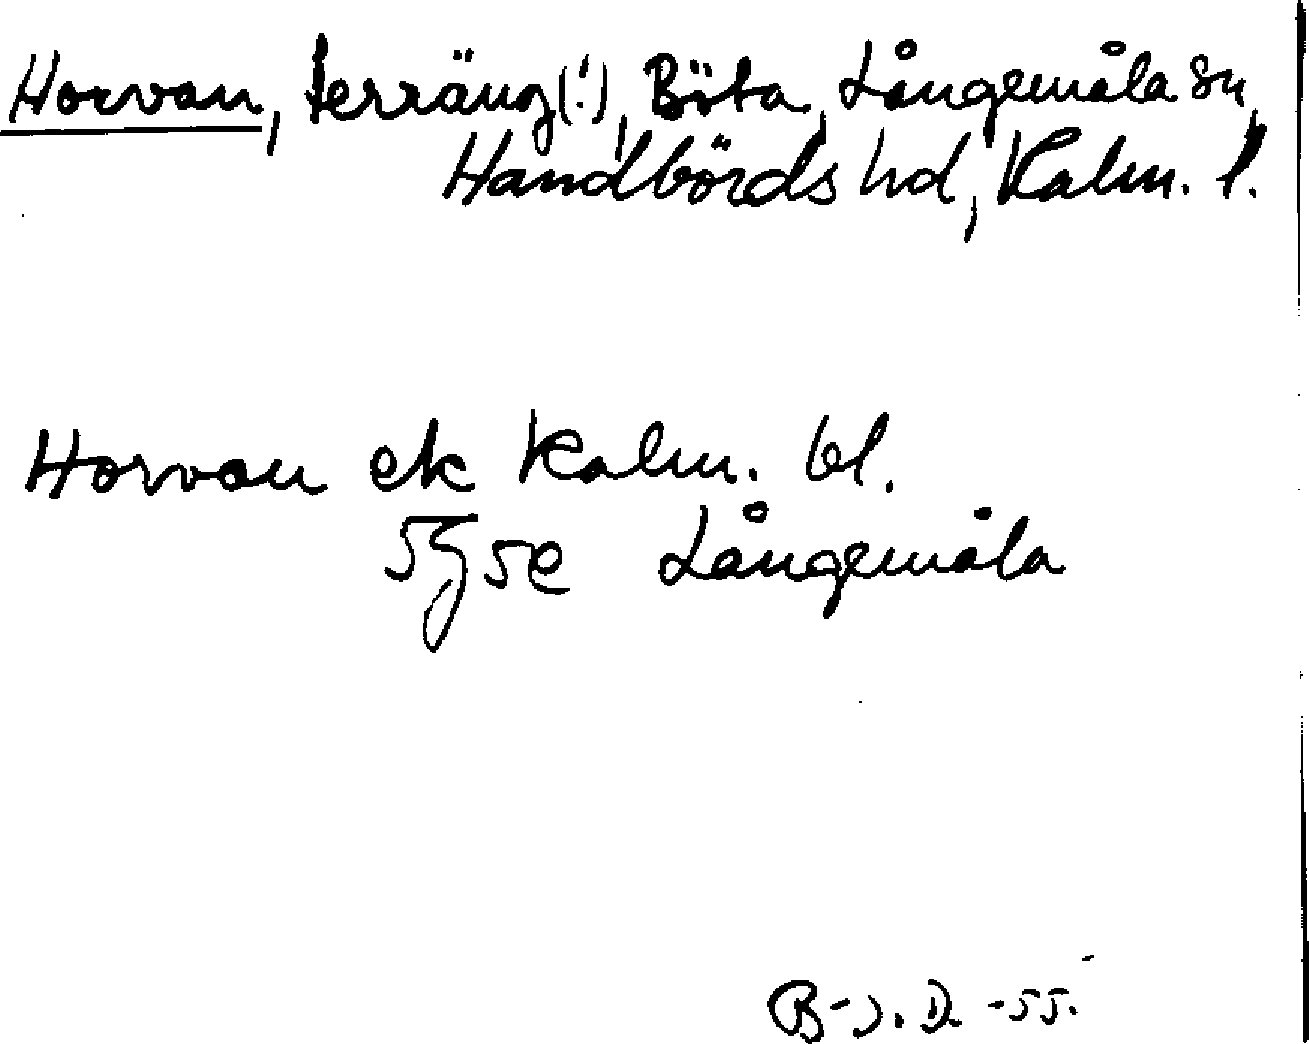 Horvan, terräng(!), Böta, Långemåla sn,
Handbörds hd, Kalm. l.
Horvan ek Kalm. bl.
5g5e Långemåla
B-J. D. -55.